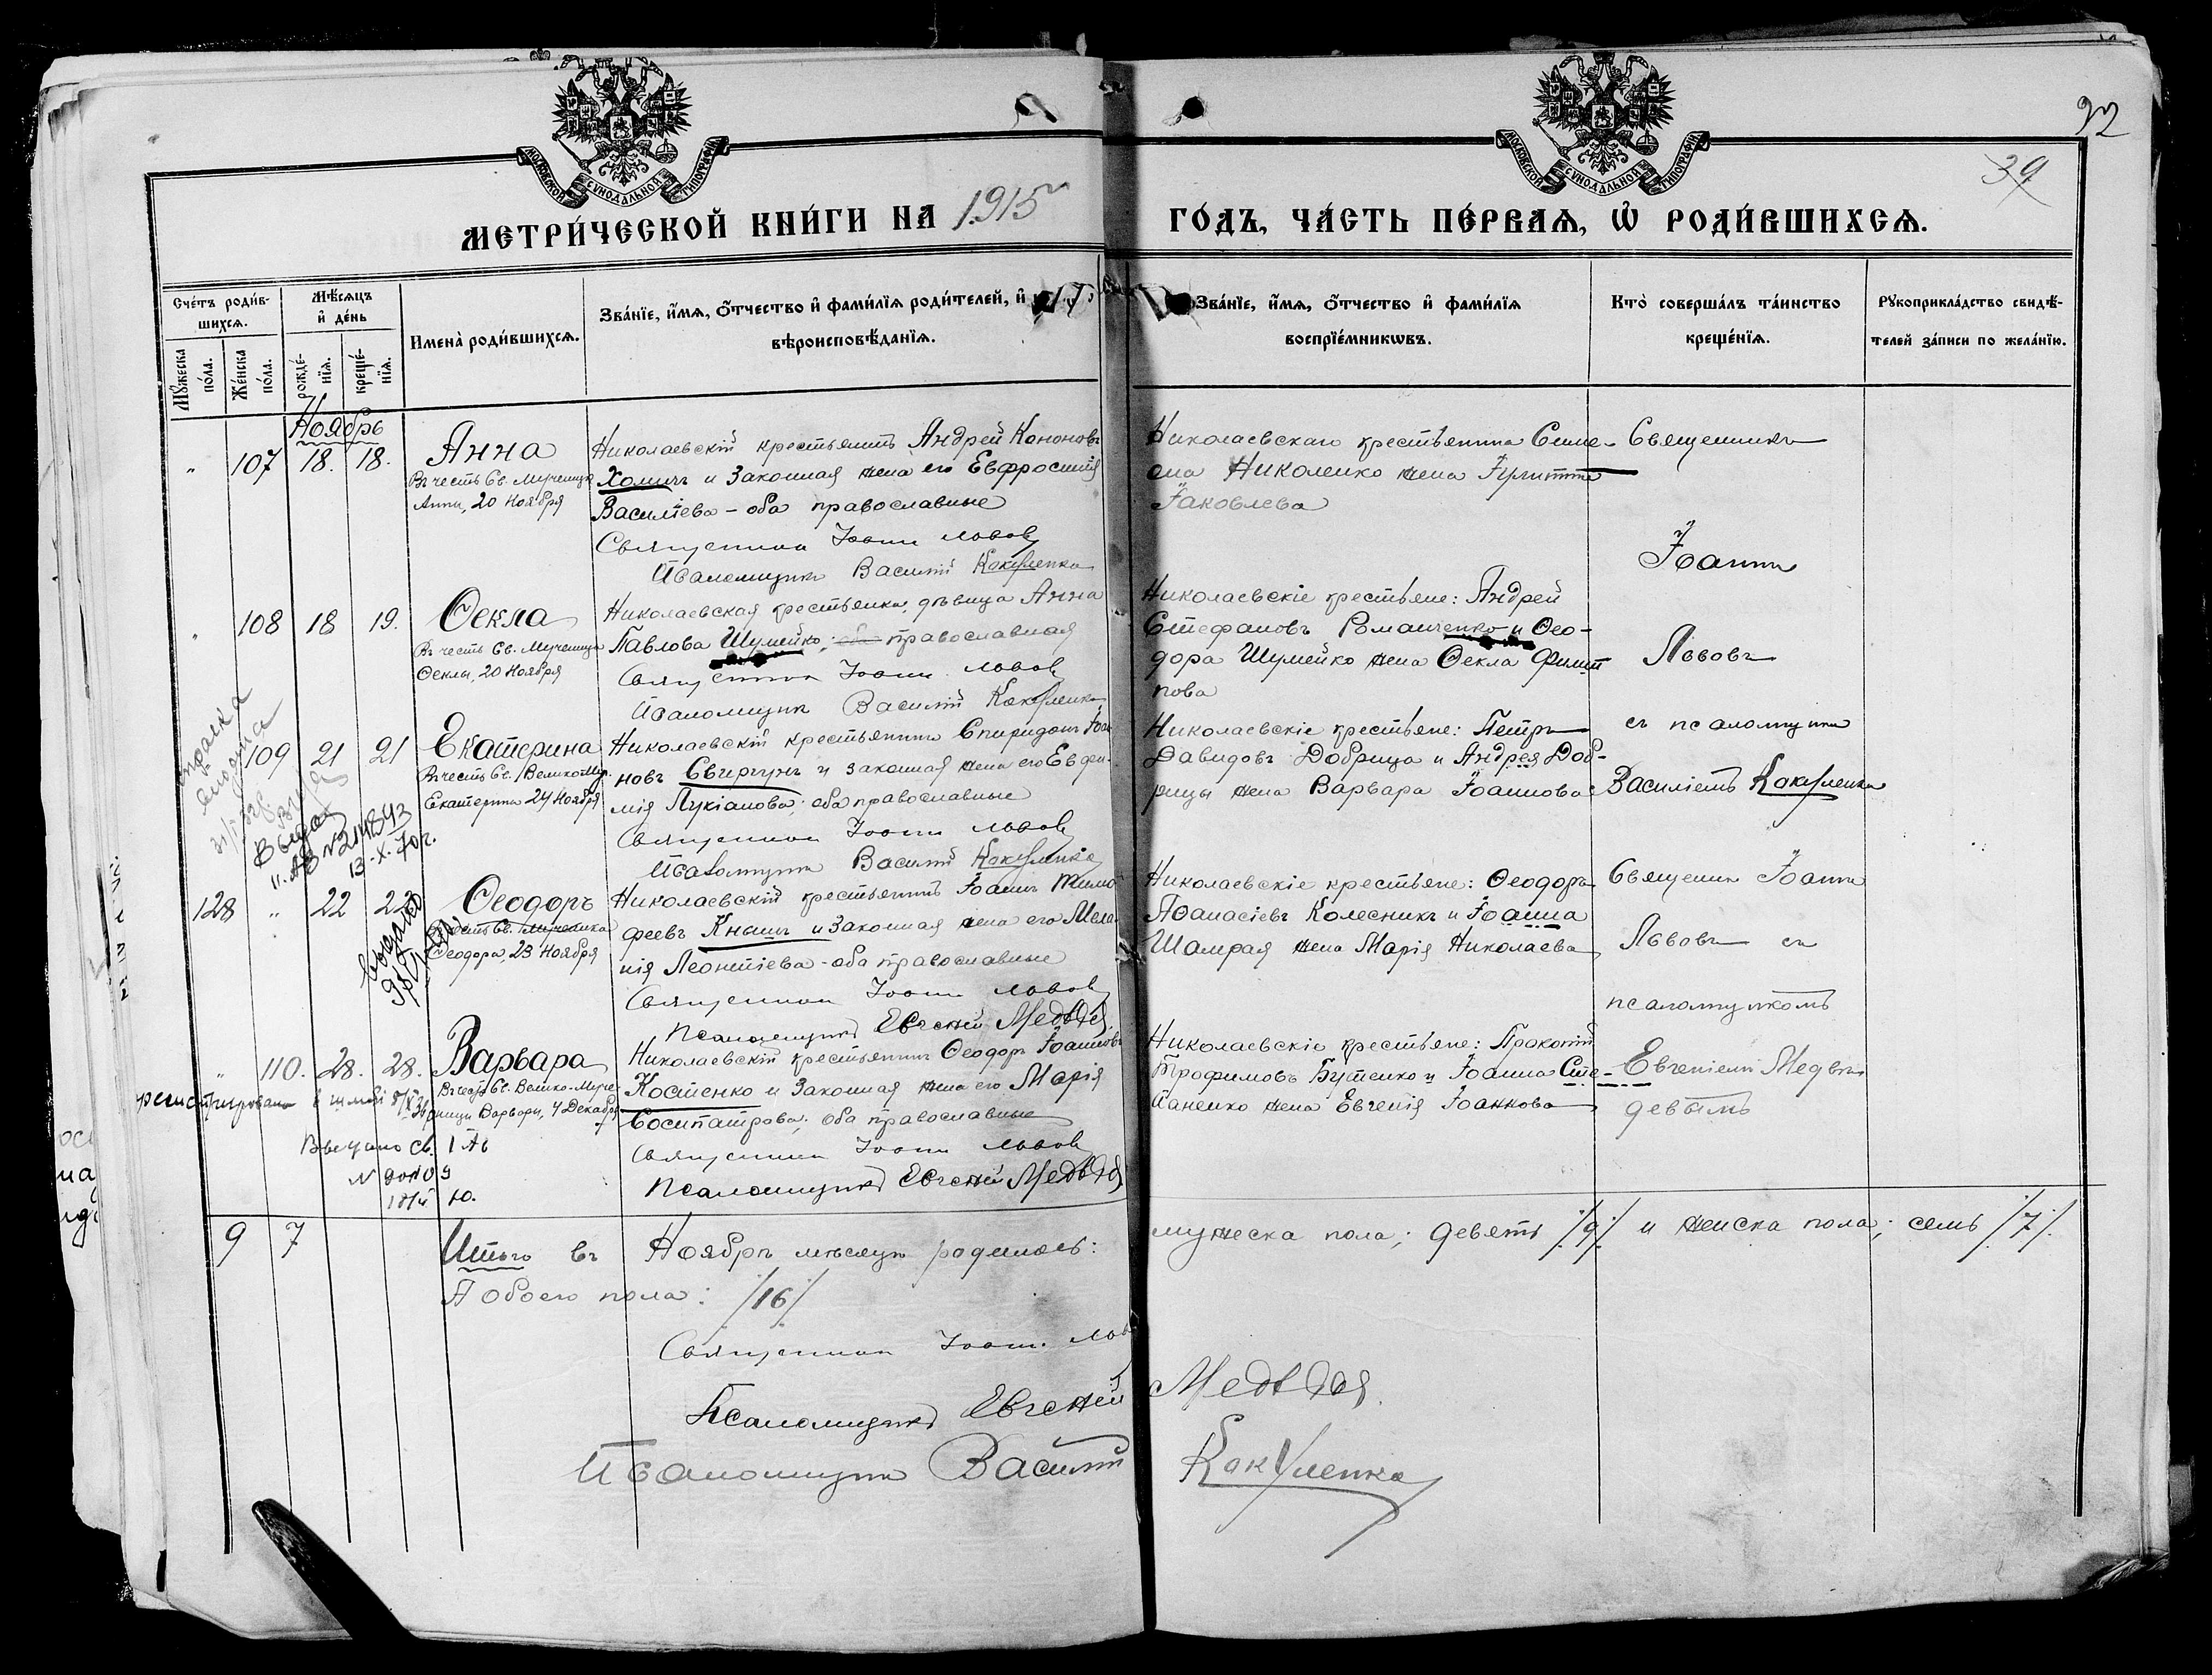 22
39
МОСКОВСКОЙ СѴНОДАЛЬНОЙ ТИПОГРАФІИ
МОСКОВСКОЙ СѴНОДАЛЬНОЙ ТИПОГРАФІИ
МЕТРИ́ЧЕСКОЙ КНИ́ГИ НА 1915
ГО́ДЪ, ЧА́СТЬ ПЕ́РВАѦ, Ѽ РОДИ́ВШИХСѦ.
Сче́тъ роди́в-
шихсѧ.
Мѣ́сѧцъ
и҆ де́нь
Мꙋ́жеска
по́ла.
Же́нска
по́ла.
рожде́-
нїѧ.
креще́-
нїѧ.
Имена̀ роди́вшихсѧ.
Зва́нїе, и҆́мѧ, ѻ҆́тчество и҆ фами́лїѧ роди́телей, и҆
вѣроисповѣ́данїѧ.
Зва́нїе, и҆́мѧ, ѻ҆́тчество и҆ фами́лїѧ
воспрїе́мникѡвъ.
Кто̀ соверша́лъ та́инство
креще́нїѧ.
Рꙋкоприкла́дство свидѣ́-
телей за́писи по жела́нїю.
Ноябрь
" 107 18. 18. Анна
Въ честь Св. Мученицы
Анны, 20 Ноября
Николаевскій крестьянинъ Андрей Кононовъ
Хомичъ и законная жена его Евфросинія
Василіева - оба православные
Священник Іоанн Львов
Псаломщикъ Василій Кокуленко
Николаевскаго крестьянина Симе-
она Николенко жена Іулитта
Іаковлева
Священникъ
Іоаннъ
Львовъ
съ псаломщикомъ
Василіемъ Кокуленко
" 108 18 19. Ѳекла
Въ честь Св. Мученицы
Ѳеклы, 20 Ноября
Николаевская крестьянка, дѣвица Анна
Павлова Шумейко; православная
Священник Іоанн Львов
Псаломщикъ Василій Кокуленко
Николаевскіе крестьяне: Андрей
Стефановъ Романченко и Ѳео-
дора Шумейко жена Ѳекла Филип
пова
109 21 21 Екатерина
Въ честь Св. Великому.
Екатерины 24 Ноября
Николаевскій крестьянинъ Спиридонъ Іоан
новъ Свиргунъ и законная жена его Евфи-
мія Лукіанова; оба православные
Священник Іоанн Львов
Псаломщикъ Василій Кокуленко
Николаевскіе крестьяне: Петръ
Давидовъ Добрица и Андрея Доб-
рицы жена Варвара Іоаннова
13-X-70г.
128 " 22 22 Ѳеодоръ
Въ честь Св. Мученика
Ѳеодора, 23 Ноября
Николаевскій крестьянинъ Іоаннъ Тимо
феевъ Кнышъ и законная жена его Мела
нія Леонтіева - оба православные
Священник Іоанн Львов
Псаломщикъ Евгеній Медвѣд
Николаевскіе крестьяне: Ѳеодоръ
Аѳанасіевъ Колесникъ и Іоанна
Шамрая жена Марія Николаева
Священник Іоаннъ
Львовъ съ
псаломщикомъ
Евгеніемъ Медвѣ
девымъ
" 110. 28. 28. Варвара
Въ честь Св. Велико-Муче-
ницы Варвары, 4 Декабря
Николаевскій крестьянинъ Ѳеодоръ Іоанновъ
Костенко и законная жена его Марія
Сосипатрова; оба православные
Священник Іоанн Львов
Псаломщикъ Евгеній Медвѣд
Николаевскіе крестьяне: Прокопій
Трофимовъ Бутенко и Іоанна Сте-
паненко жена Евгенія Іоаннова
9 7 Итого въ Ноябрѣ мѣсяцѣ родилось:
мужеска пола; девять /9/ и женска пола; семь /7/.
А обоего пола: /16/
Священник Іоанн Львов
Псаломщикъ Евгеній Медвѣдев
Псаломщикъ Василій Кокуленко